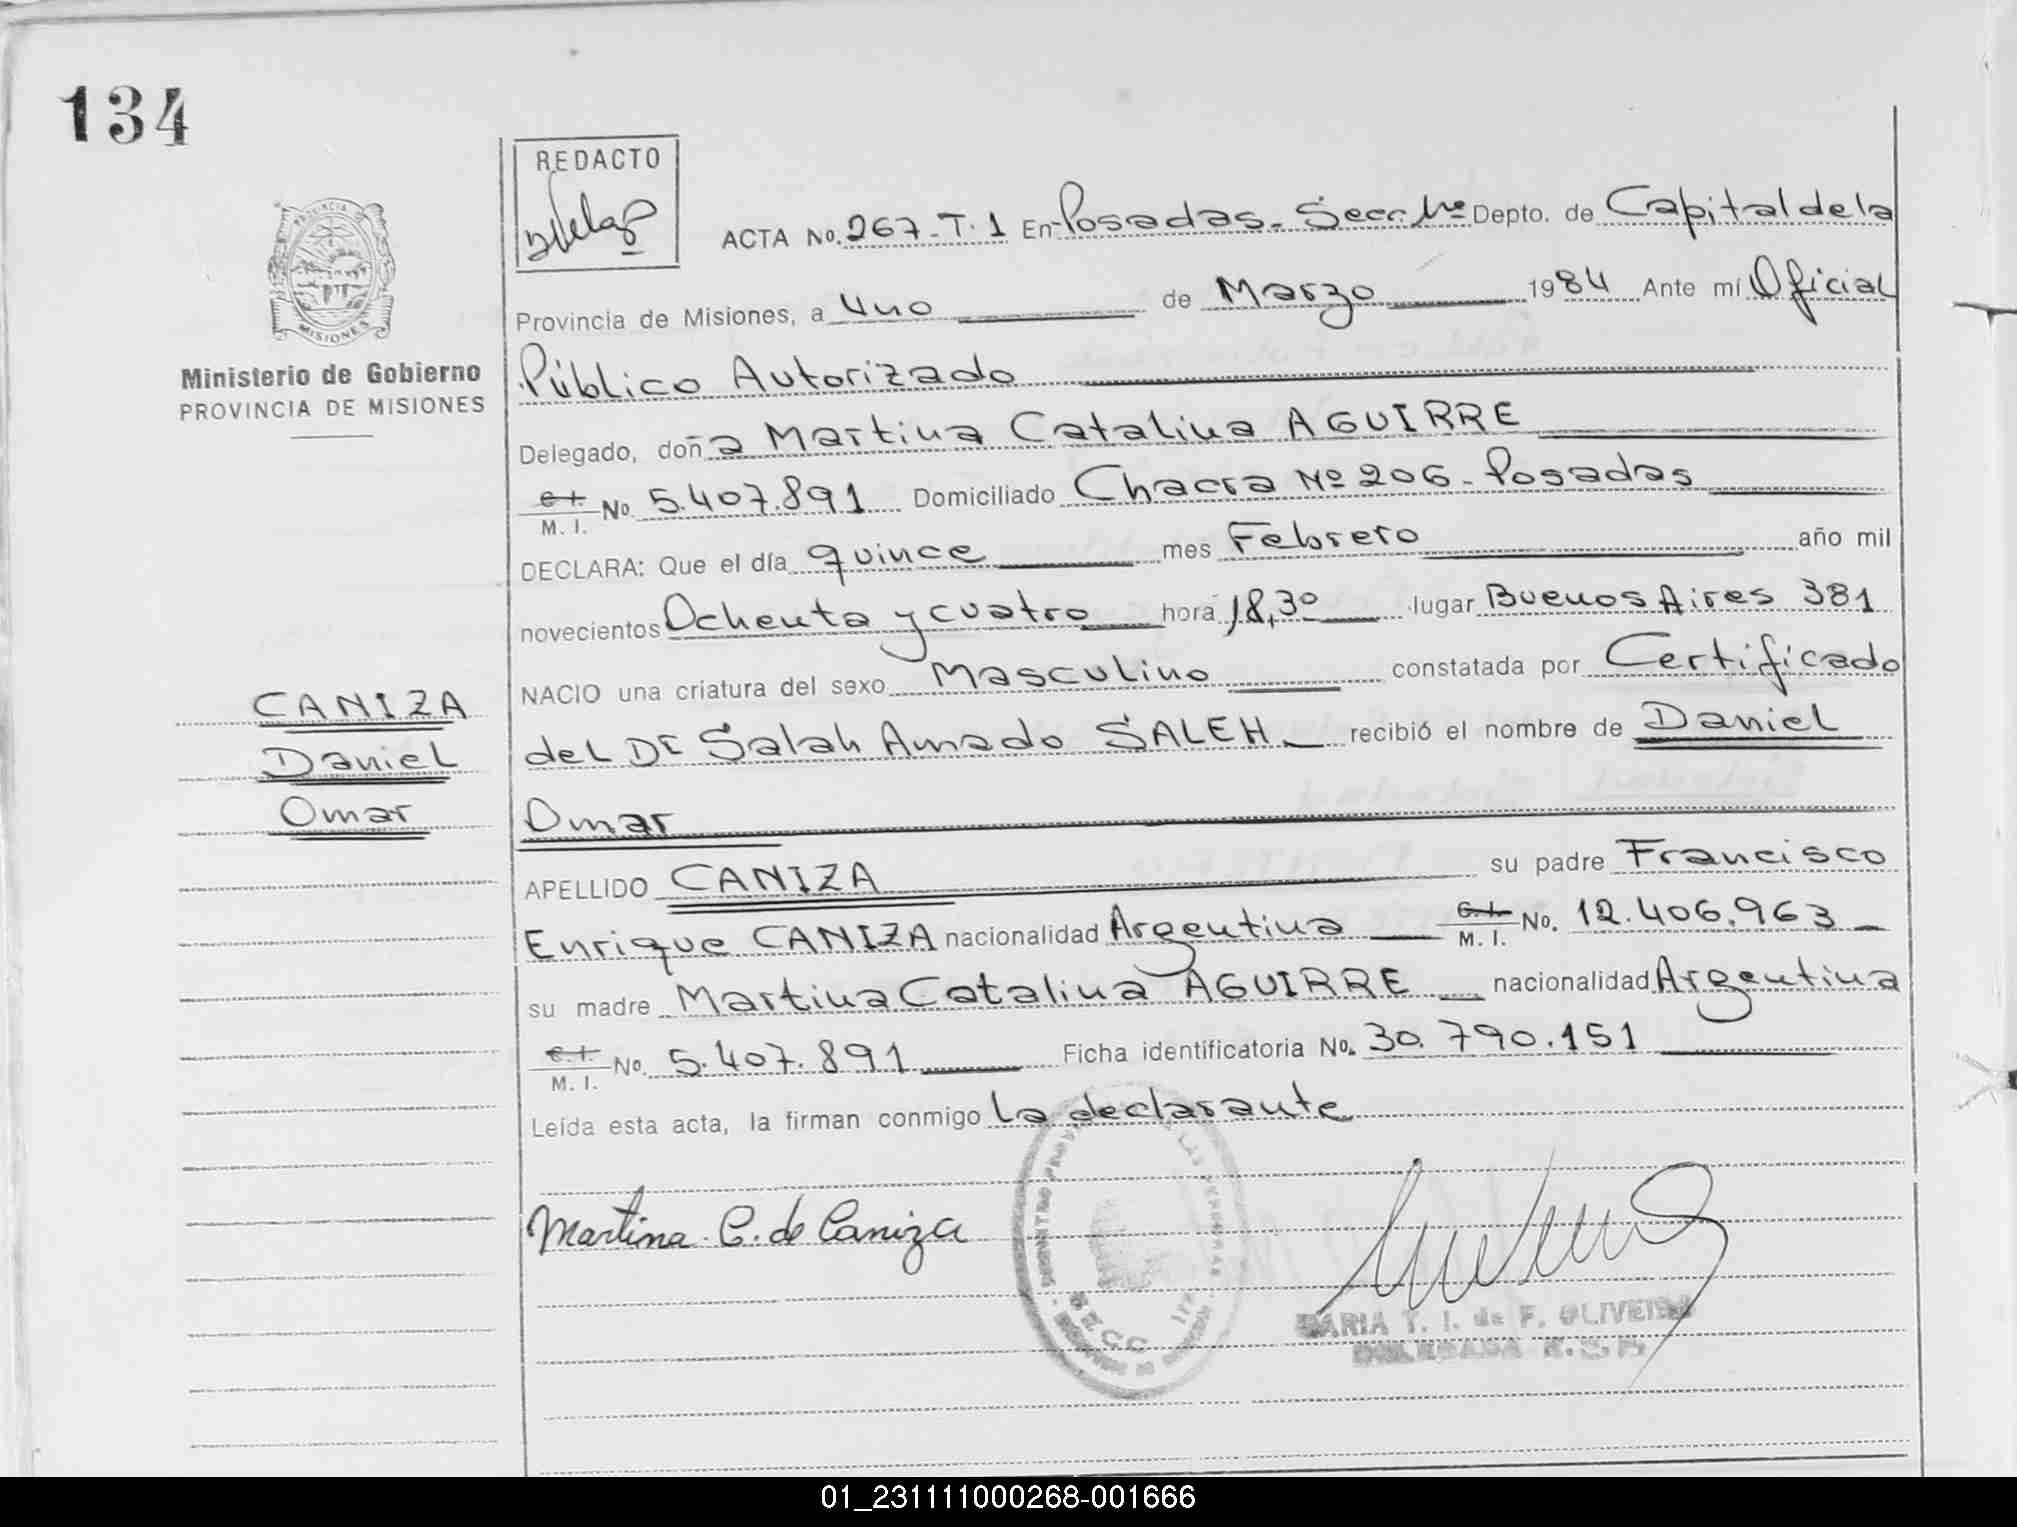 134
REDACTO
PROVINCIA
MISIONES
ACTA No. 267-T.1 En Posadas. Secc. Depto. de Capital de la
Provincia de Misiones, a uno de Marzo 1984 Ante mí Oficial
Ministerio de Gobierno
PROVINCIA DE MISIONES
Público Autorizado
Delegado, doña Martina Catalina AGUIRRE
C.I. M.I. No. 5.407.891 Domiciliado Chacra Nº 206 - Posadas
DECLARA: Que el día quince mes Febrero año mil
novecientos Ochenta y cuatro hora 18,30 lugar Buenos Aires 381
NACIO una criatura del sexo Masculino constatada por Certificado
CANIZA
Daniel
Omar
del Dr Salah Amado SALEH recibió el nombre de Daniel
Omar
APELLIDO CANIZA su padre Francisco
Enrique CANIZA nacionalidad Argentina C.I. M.I. No. 12.406.963
su madre Martina Catalina AGUIRRE nacionalidad Argentina
C.I. M.I. No. 5.407.891 Ficha identificatoria No. 30.790.151
Leída esta acta, la firman conmigo la declarante
Martina C. de Caniza
SECC
MARIA T. I. de F. OLIVEIRA
01_231111000268-001666